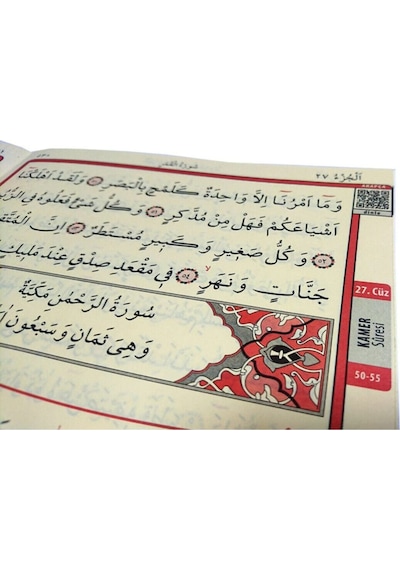 اَلْجُزْءُ ٢٧
سُورَةُ الْقَمَرِ
وَمَا اَمْرُنَا اِلَّا وَاحِدَةٌ كَلَمْحٍ بِالْبَصَرِ ﴿٥٠﴾ وَلَقَدْ اَهْلَكْنَا
اَشْيَاعَكُمْ فَهَلْ مِنْ مُدَّكِرٍ ﴿٥١﴾ وَكُلُّ شَيْءٍ فَعَلُوهُ فِي
﴿٥٢﴾ وَكُلُّ صَغِيرٍ وَكَبِيرٍ مُسْتَطَرٌ ﴿٥٣﴾ اِنَّ
جَنَّاتٍ وَنَهَرٍ ﴿٥٤﴾ فِي مَقْعَدِ صِدْقٍ عِنْدَ مَلِيكٍ
سُورَةُ الرَّحْمٰنِ مَكِّيَّةٌ
وَهِيَ ثَمَانٍ وَسَبْعُونَ
dinle
27. Cüz
KAMER
Sûresi
50-55